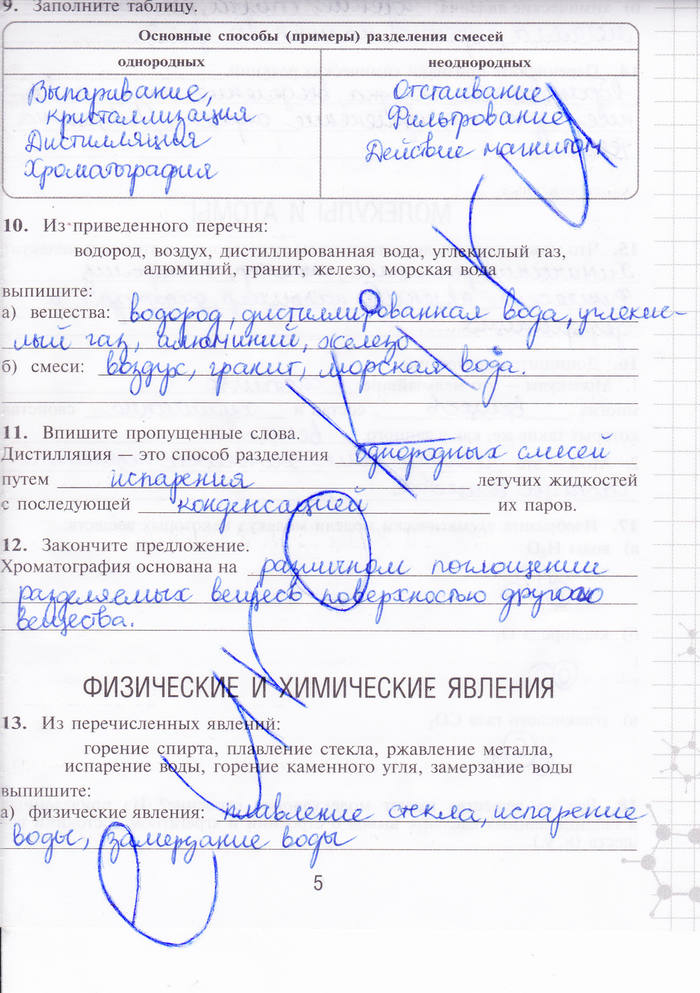 9. Заполните таблицу.
Основные способы (примеры) разделения смесей
однородных
неоднородных
Выпаривание,
кристаллизация
Дистилляция
Хроматография
Отстаивание
Фильтрование
Действие магнитом
10. Из приведенного перечня:
водород, воздух, дистиллированная вода, углекислый газ,
алюминий, гранит, железо, морская вода
выпишите:
а) вещества: водород, дистиллированная вода, углекис-
лый газ, алюминий, железо
б) смеси: воздух, гранит, морская вода.
11. Впишите пропущенные слова.
Дистилляция — это способ разделения однородных смесей
путем испарения летучих жидкостей
с последующей конденсацией их паров.
12. Закончите предложение.
Хроматография основана на различном поглощении
разделяемых веществ поверхностью другого
вещества.
ФИЗИЧЕСКИЕ И ХИМИЧЕСКИЕ ЯВЛЕНИЯ
13. Из перечисленных явлений:
горение спирта, плавление стекла, ржавление металла,
испарение воды, горение каменного угля, замерзание воды
выпишите:
а) физические явления: плавление стекла, испарение
воды, замерзание воды
5